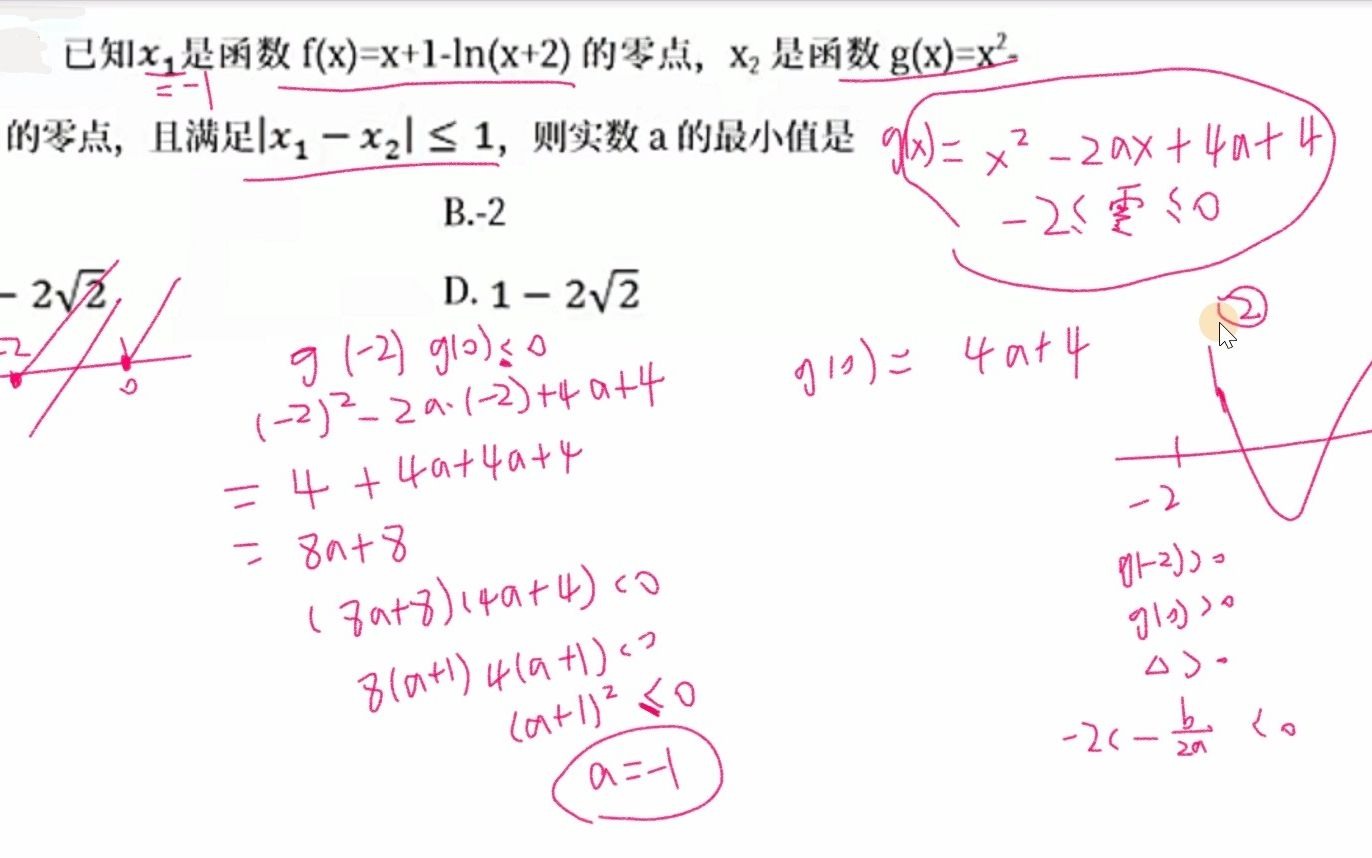 已知x₁是函数 f(x)=x+1-ln(x+2) 的零点，x₂ 是函数 g(x)=x²-
= -1
的零点，且满足|x₁ − x₂| ≤ 1，则实数 a 的最小值是
g(x) = x² - 2ax + 4a + 4
-2 ≤ 零 ≤ 0
B.-2
− 2√2
D. 1 − 2√2
-2
0
②
g(-2) g(0) ≤ 0
(-2)² - 2a·(-2) + 4a + 4
= 4 + 4a + 4a + 4
= 8a + 8
(8a+8)(4a+4) < 0
8(a+1) 4(a+1) < 0
(a+1)² ≤ 0
a = -1
g(0) = 4a + 4
-2
g(-2) > 0
g(0) > 0
Δ > 0
-2 < - b/2a < 0